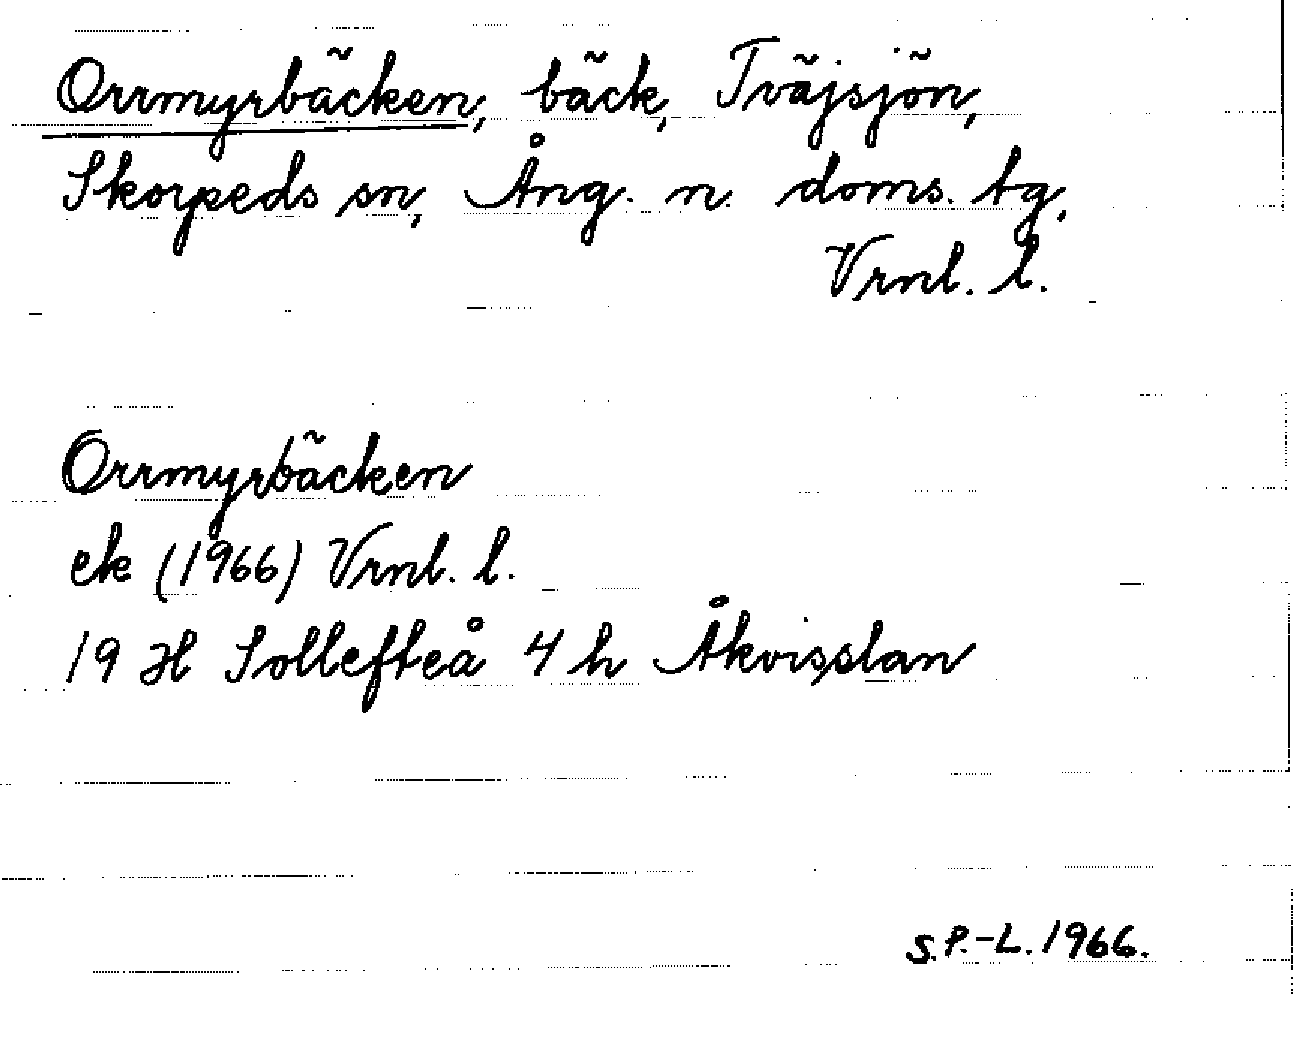 Orrmyrbäcken, bäck, Tväjsjön,
Skorpeds sn, Ång. n. doms. tg,
Vrnl. l.
Orrmyrbäcken
ek (1966) Vrnl. l.
19 H Sollefteå 4 h Åkvisslan
S.P.-L. 1966.